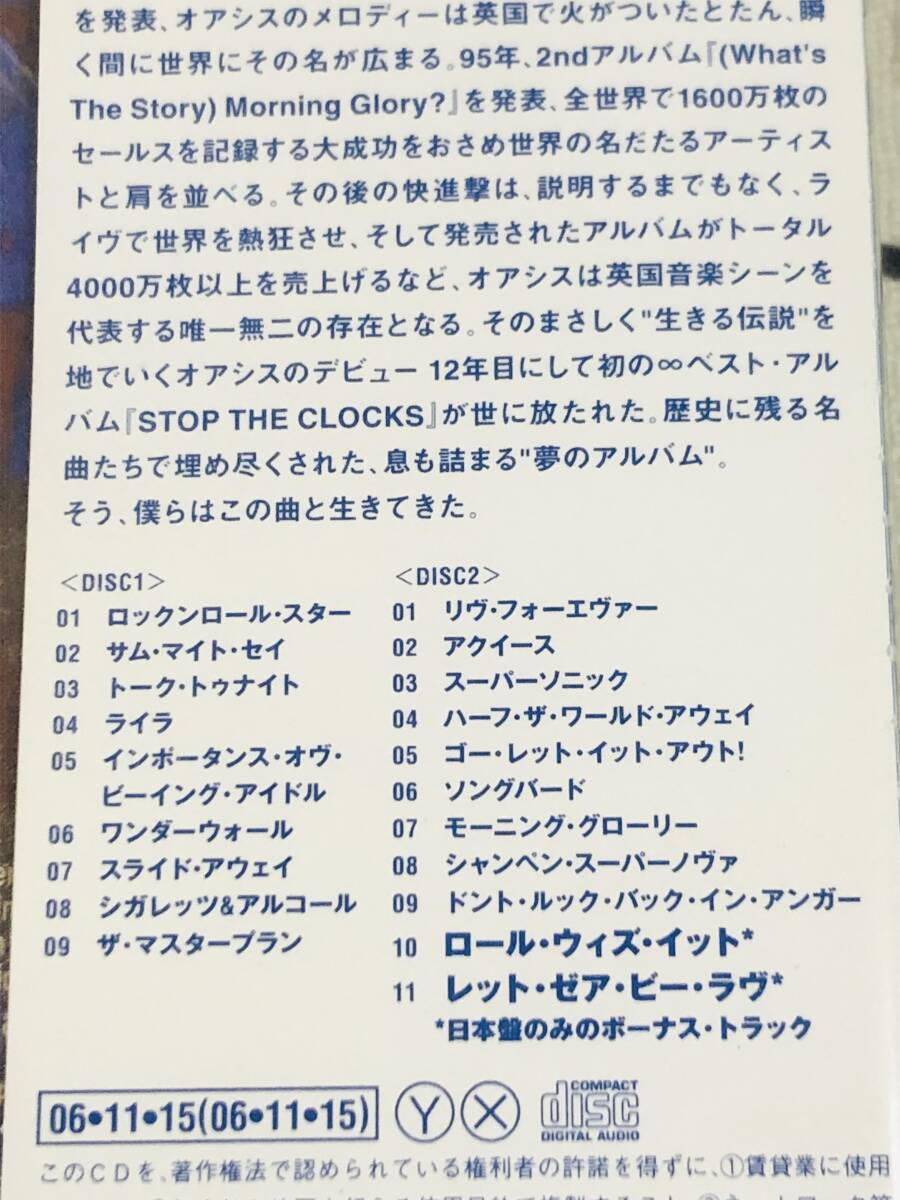 を発表、オアシスのメロディーは英国で火がついたとたん、瞬
く間に世界にその名が広まる。95年、2ndアルバム『(What's
The Story) Morning Glory?』を発表、全世界で1600万枚の
セールスを記録する大成功をおさめ世界の名だたるアーティス
トと肩を並べる。その後の快進撃は、説明するまでもなく、ラ
イヴで世界を熱狂させ、そして発売されたアルバムがトータル
4000万枚以上を売上げるなど、オアシスは英国音楽シーンを
代表する唯一無二の存在となる。そのまさしく"生きる伝説"を
地でいくオアシスのデビュー 12年目にして初の∞ベスト・アル
バム『STOP THE CLOCKS』が世に放たれた。歴史に残る名
曲たちで埋め尽くされた、息も詰まる"夢のアルバム"。
そう、僕らはこの曲と生きてきた。
<DISC1>
01 ロックンロール・スター
02 サム・マイト・セイ
03 トーク・トゥナイト
04 ライラ
05 インポータンス・オヴ・
ビーイング・アイドル
06 ワンダーウォール
07 スライド・アウェイ
08 シガレッツ&アルコール
09 ザ・マスタープラン
<DISC2>
01 リヴ・フォーエヴァー
02 アクイース
03 スーパーソニック
04 ハーフ・ザ・ワールド・アウェイ
05 ゴー・レット・イット・アウト!
06 ソングバード
07 モーニング・グローリー
08 シャンペン・スーパーノヴァ
09 ドント・ルック・バック・イン・アンガー
10 ロール・ウィズ・イット*
11 レット・ゼア・ビー・ラヴ*
*日本盤のみのボーナス・トラック
06•11•15(06•11•15)
Y X
COMPACT
disc
DIGITAL AUDIO
このCDを、著作権法で認められている権利者の許諾を得ずに、①賃貸業に使用